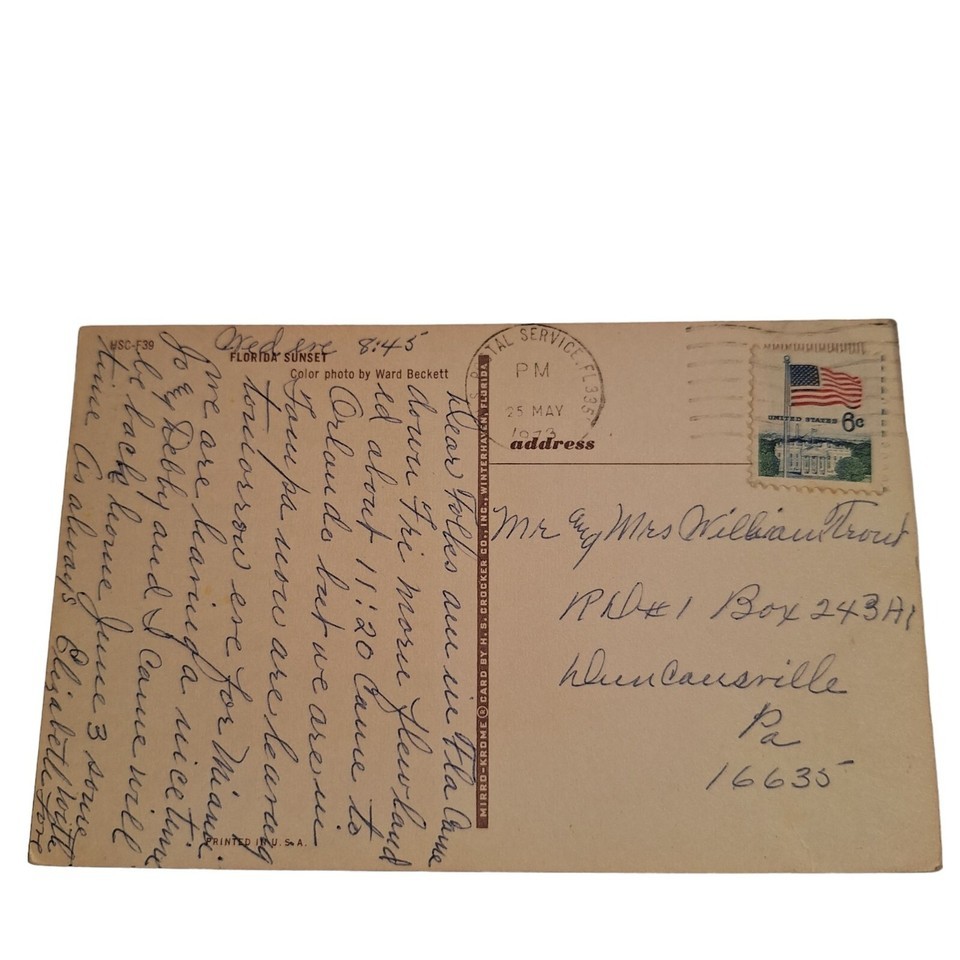 HSC-F39
FLORIDA SUNSET
Color photo by Ward Beckett
Wed eve 8:45
Dear Folks am in Fla Came
down Fri morn flew land
ed about 11:20 Came to
Orlando but we are in
Tampa now are leaving
tomorrow eve for Miami
we are having a nice time
Jo & Debby and I Came will
be back home June 3 some
time As always Elizabeth
PRINTED IN U.S.A.
MIRRO-KROME ® CARD BY H. S. CROCKER CO., INC., WINTERHAVEN, FLORIDA
POSTAL SERVICE, FL 335
PM
25 MAY
1973
UNITED STATES
6c
address
Mr and Mrs William Trout
RD#1 Box 243A1
Duncansville
Pa
16635